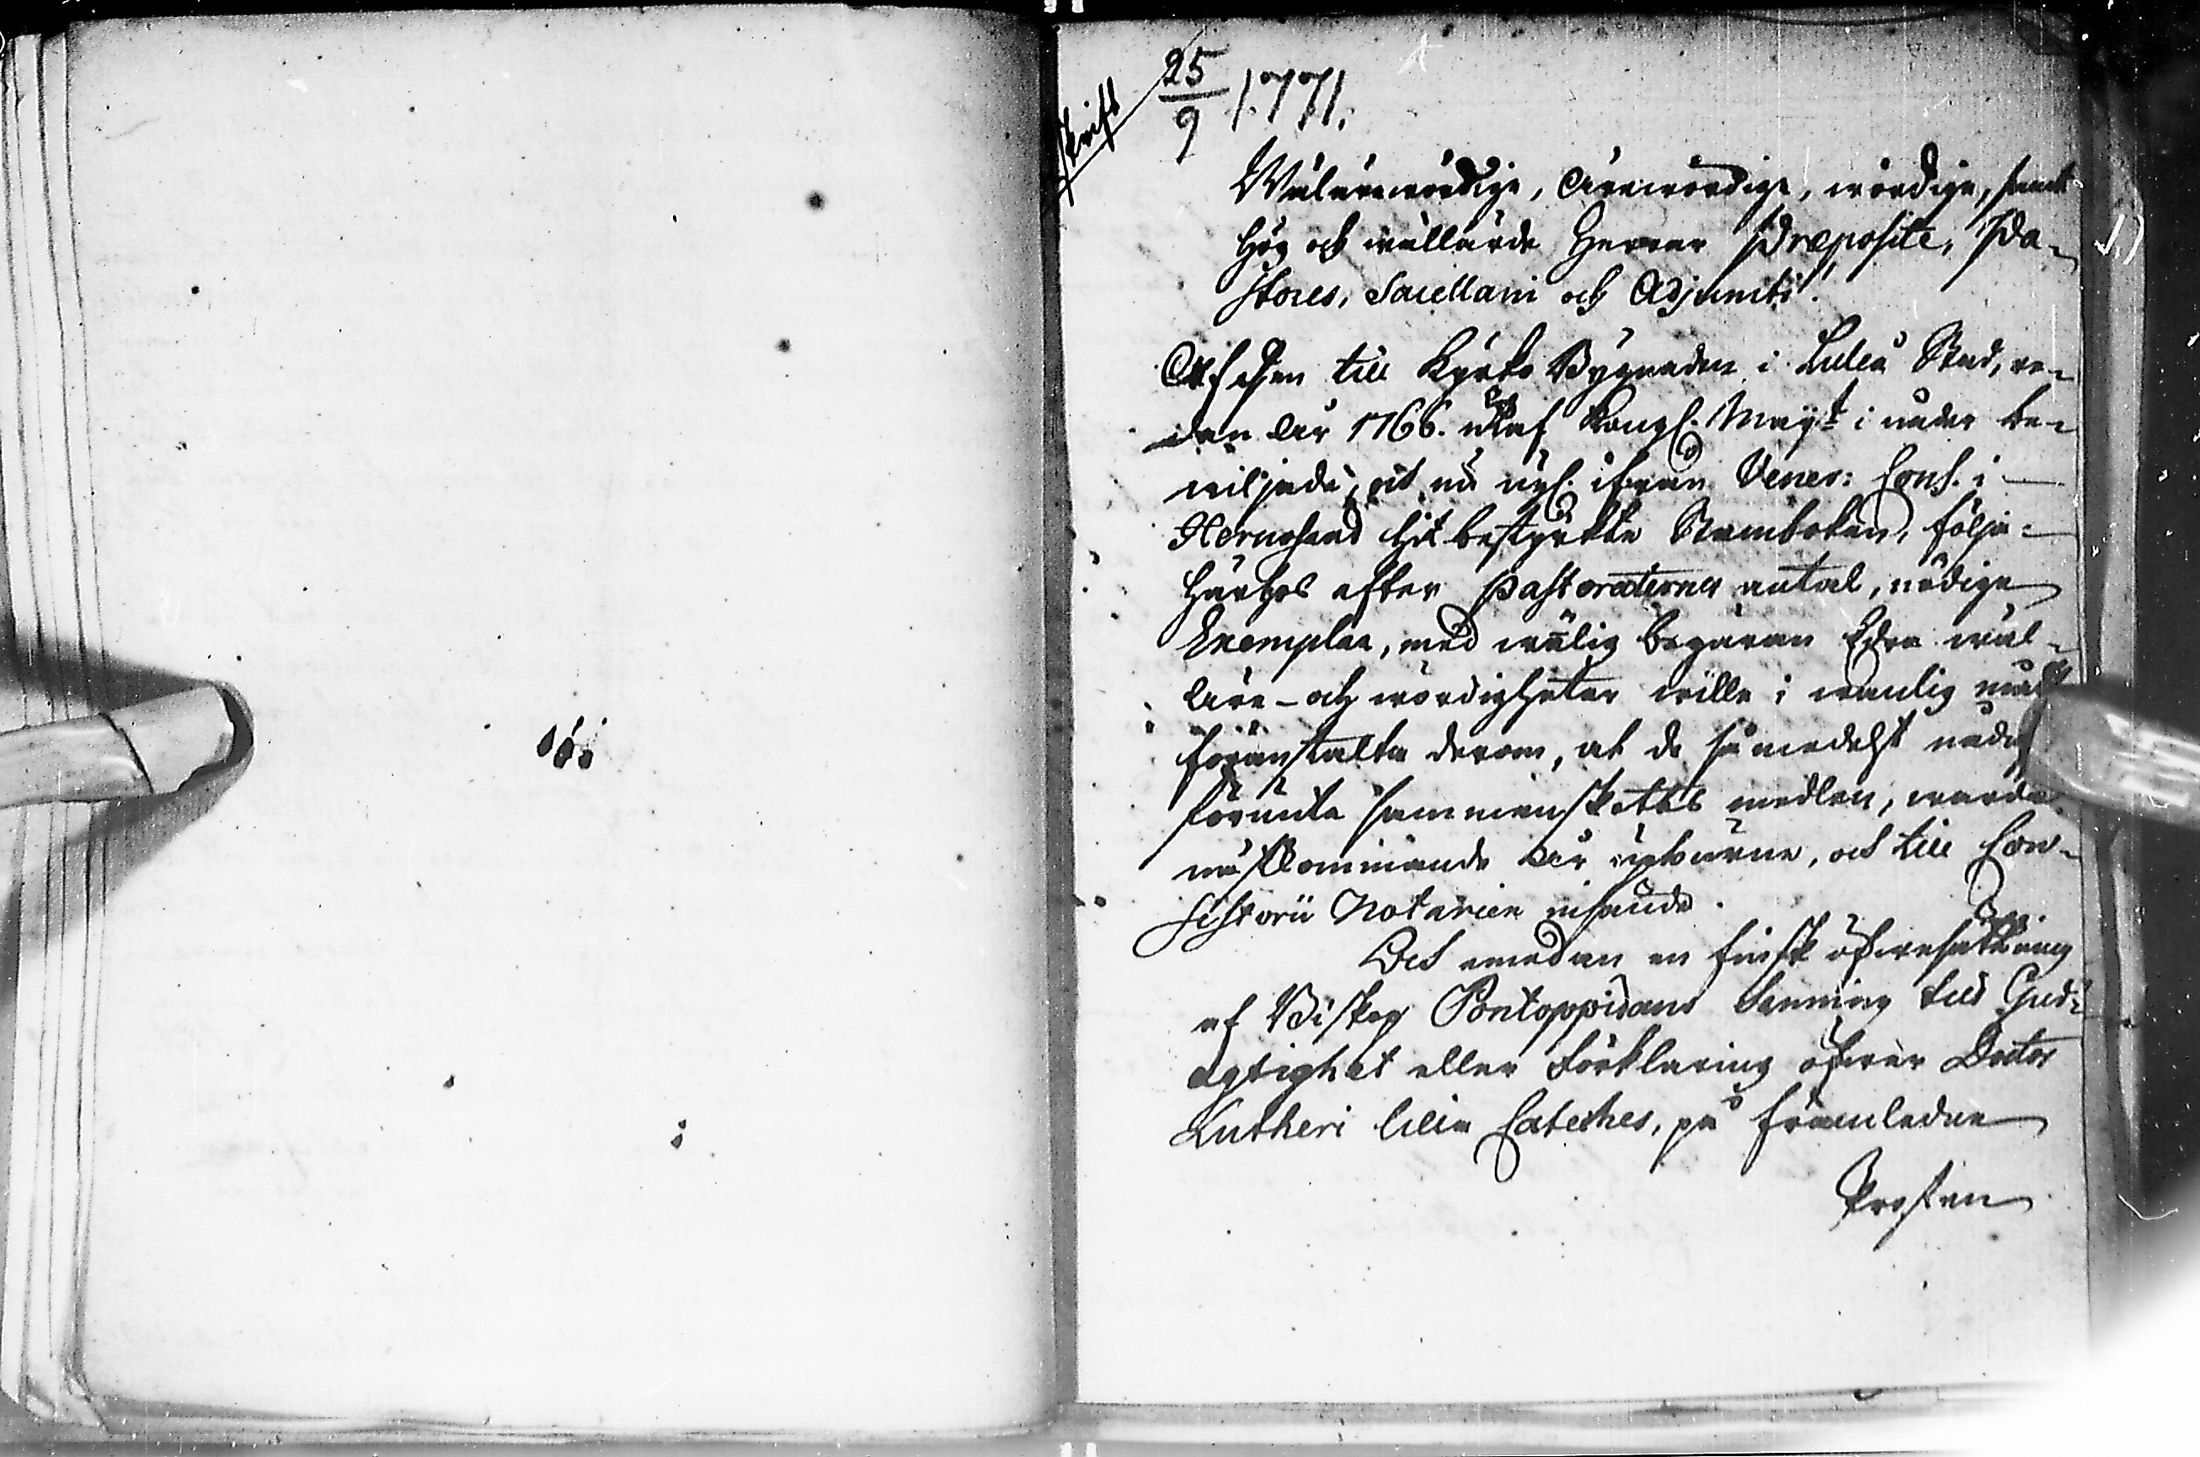 25/9 1771.
Wälärewördige, Ärewördige, wördige, samt
Hög och wällärde Herrar Præposite, Pa-
stores, Sacellani och Adjuncti!
Af den till Kyrko Bygnaden i Luleå Stad, re-
dan År 1766. utaf Kongl. Mayt i nåder be-
wiljade, och nu ifrån Vener: Cons. i
Hernosand hit Stamboken, följa
härhos efter Pastoraternas antal, nödige
Exemplar, med wänlig begäran Edra wäl-
Äre- och wördigheter wille i wanlig måtto
föranstalta derom, at de såmedelst
förunte sammanskotts medlen, warda
nästkommande År upburne, och till Con-
sistorii Notarien insände.
Des emedan en finsk öfwersättning
af Biskop Pontoppidans Sanning till Gud-
agtighet eller Förklaring öfwer Doctor
Lutheri lilla Cateches, på framledne
Prosten